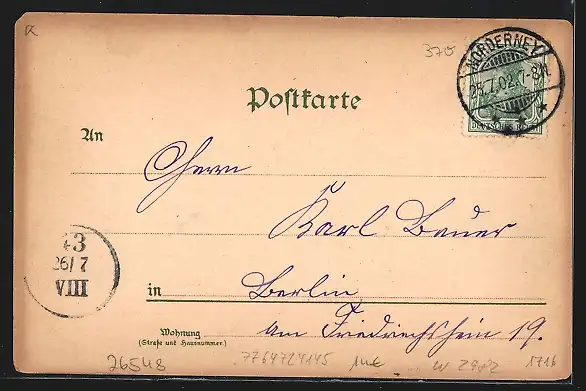 370
NORDERNEY
25.7.02.7-8N.
DEUTSCHES REICH
Postkarte
An
Herrn
Karl Bauer
43
26/7
VIII
in Berlin
Wohnung
(Straße und Hausnummer)
am Friedrichshein 19.
26548
7764724145 14€ W Z982 1716